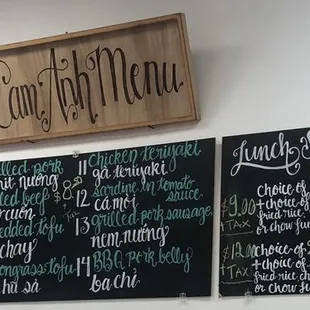 Cam Anh Menu
lled pork
hit nướng
lled beef
cuon
edded tofu
chay
ongrass tofu
hu sả
11 Chicken teriyaki
gà teriyaki
12 sardine in tomato
sauce
cá mòi
13 grilled pork sausage
nem nướng
14 BBQ pork belly
ba chỉ
Lunch
choice of
+ choice o
fried rice
or chow fun
$9.00
+ TAX
choice of 2
+ choice of
fried rice, ch
or chow fun
$12.00
+ TAX